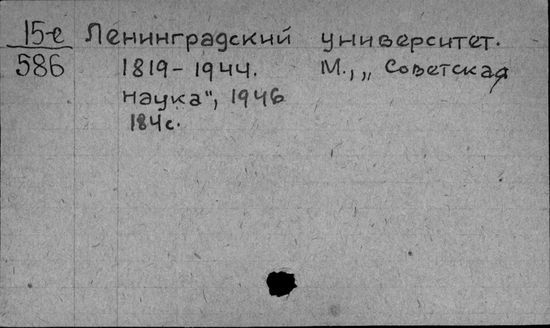 15-е Ленинградский университет.
586 1819-1944. М., „Советская
наука", 1946
184с.